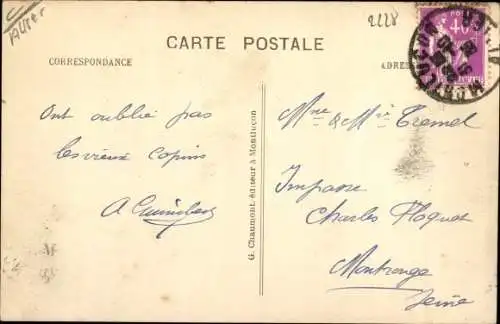 Allier
2228
CARTE POSTALE
CORRESPONDANCE
ADRES
40
Ont oublié pas
les vieux copins
G. Chaumont, éditeur à Montluçon
Mme & Mr Tremel
Impasse
Charles Floquet
Montrouge
Seine